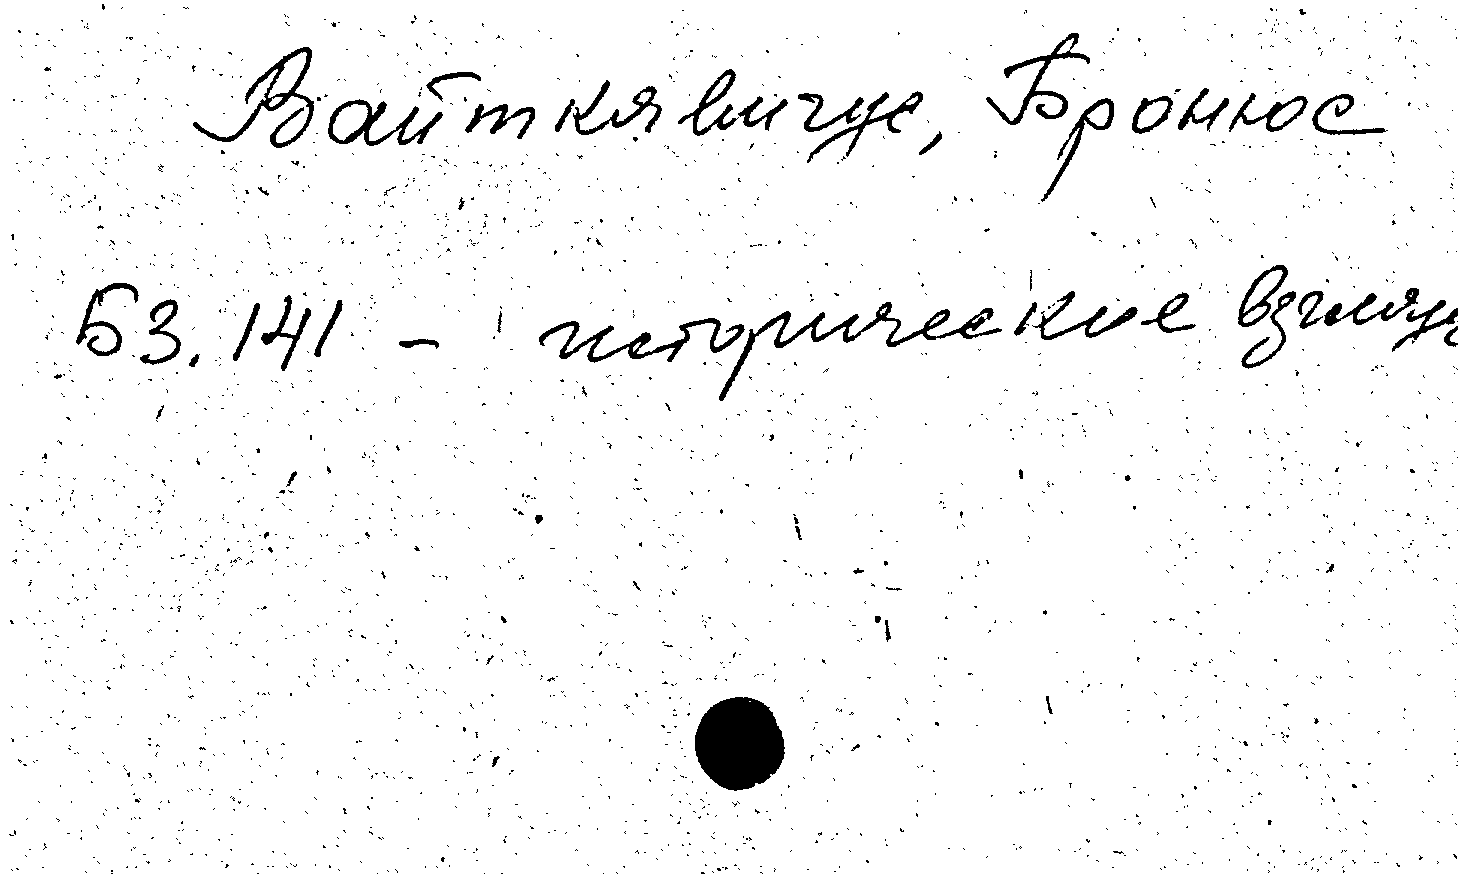 Вайткявичус, Бронюс
Б3.141 - исторические взгляды